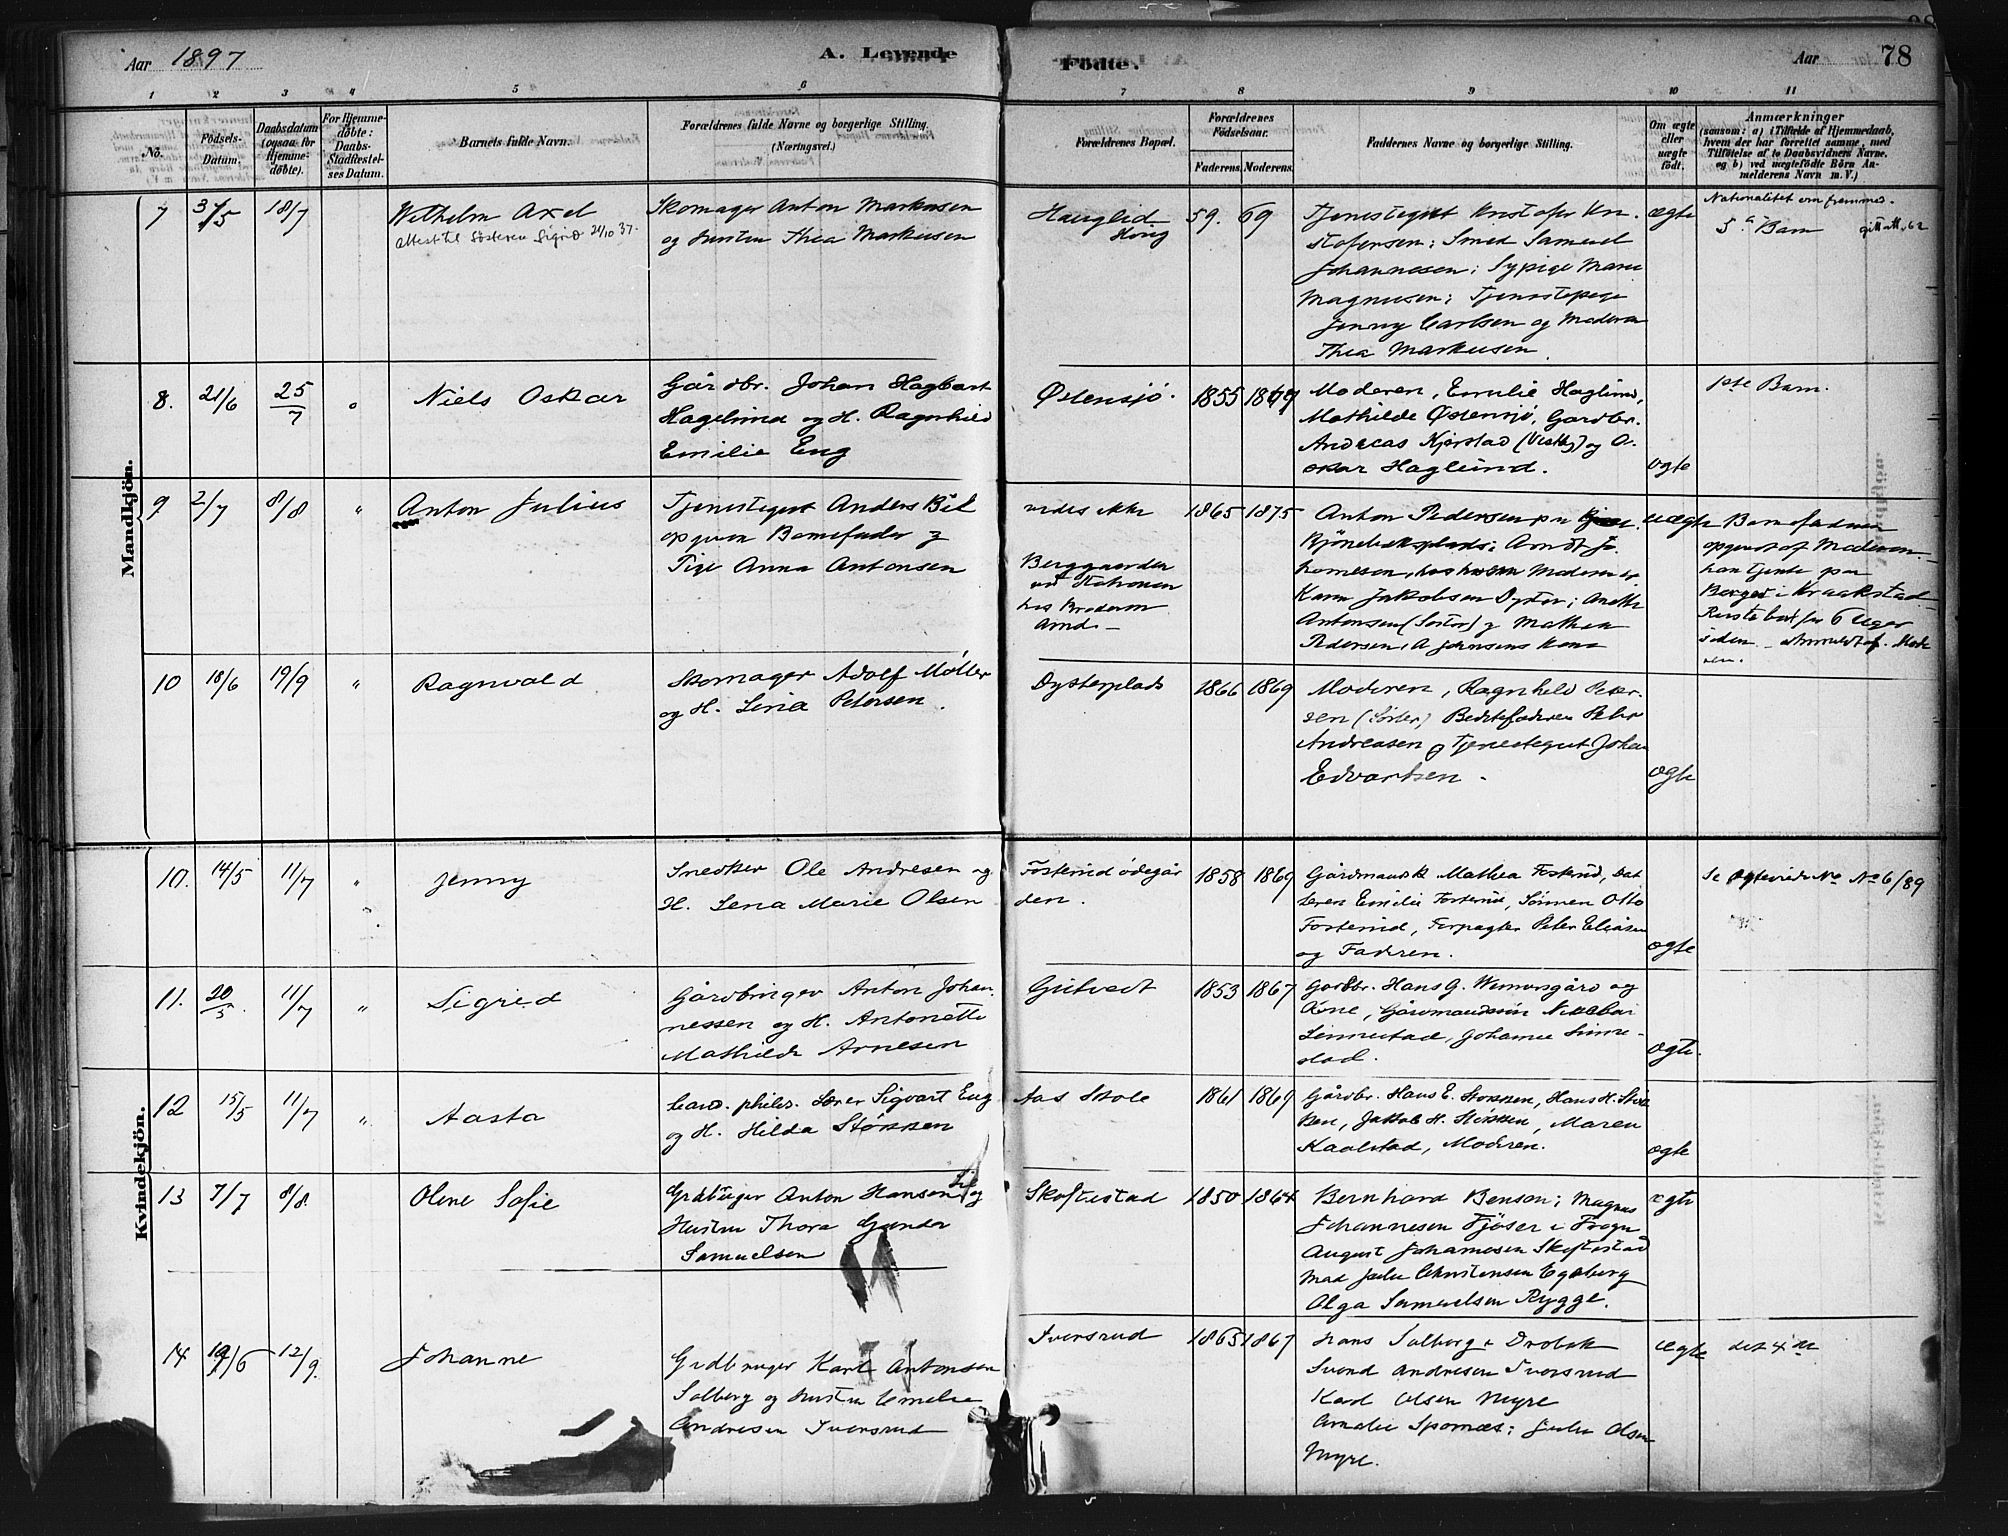 Aar 1897
A. Levende
Fødte.
Aar 78
1 2 3 4 5 6 7 8 9 10 11
No.
Fødsels-
Datum.
Daabsdatum
(ogsaa for
Hjemme-
døbte).
For Hjemme-
døbte:
Daabs-
Stadfæstel-
ses Datum.
Barnets fulde Navn.
Forældrenes fulde Navne og borgerlige Stilling.
(Næringsvei.)
Forældrenes Bopæl.
Forældrenes
Fødselsaar.
Faderens. Moderens.
Faddernes Navne og borgerlige Stilling.
Om ægte
eller
uægte
født.
Anmærkninger
(saasom: a) i Tilfælde af Hjemmedaab,
hvem der har forrettet samme, med
Tilføielse af to Daabsvidners Navne,
og b) ved uægtefødte Børn An-
melderens Navn m.V.)
Mandkjön.
7 18/7
Wilhelm Axel
attest til Søsteren Sigrid 24/10 37.
Skomager Anton Markusen
og Hustru Thea Markusen
Hauglid
59. 69
Tjenestegut Kristofer Kri-
stofersen; Smed Samuel
Johannesen; Sypige Marie
Magnusen; Tjenestepige
Jenny Carlsen og Moderen
Thea Markusen.
ægte
5te Barn
8. 21/6 25/7
Niels Oskar
Gårdbr. Johan Hagbart
Hagelund og H. Ragnhild
Emilie Eng
Østensjø.
1855 1869
Moderen, Emilie Haglund,
Mathilde Østensjø, Gardbr.
Andreas Kjærstad (Vestby) og O-
skar Haglund.
ægte
1ste Barn.
9 2/7 8/8 "
Anton Julius
Tjenestegut Anders
opgiven Barnefader og
Pige Anna Antonsen
vides ikke
Berggaarden
ved Stationen
hos Broderen
Arnd-
1865 1875
Anton Pedersen
Bjønebeksplads; Arndt Jo-
hannesen, hos Moderen er
Karn Jakobsen Dyster; Anette
Antonsen (Søster) og Mathea
Pedersen, A Johnsens Kone
uægte
Barnefaderen
opgivet af Moderen
han tjente paa
Berger i Kraakstad
Reiste bort for 6 Uger
siden - Anmeldt af Mode
ren.
10 18/6 19/9 "
Ragnvald
Skomager Adolf Møller
og H. Lina Petersen.
Dysterplads
1866 1869
Moderen, Ragnhild Peter-
sen (Søster) Bedstefaderen Peter
Andreasen og Tjenestegut Johan
Edvartsen.
ægte
Kvindekjön.
10. 14/5 11/7 "
Jenny
Snedker Ole Andresen og
H. Lena Marie Olsen
Fosterud ødegår
den.
1858 1869
Gårdmandsk Mathea Fosterud, Dat
teren Emilie Fosterud, Sønnen Otto
Fosterud, Forpagter Peter Eliasen
og Faderen.
ægte
Se No 6/89
11. 20/5. 11/7 "
Sigrid
Gårdbruger Anton Johan-
nessen og H. Antonette
Mathilde Arnesen
Gutvedt
1853 1867
Gardbr. Hans G. Wamersgård og
Kone, Gårdmandssøn Nikolai
Linnestad, Johanne Linne-
stad.
ægte.
12 15/5 11/7 "
Aasta
Cand. philos. Lærer Sigvart Eng
og H. Hilda Størkken
Aas Skole
1861 1869
Gårdbr. Hans E. Størkken, Hans H. Størk
ken, Jakob H. Størkken, Maren
Kaalstad, Moderen.
ægte
13 7/7 8/8.
Olene Sofie
Grdbruger Anton Hansen og
Hustru Thora Gunda
Samuelsen
Skoftestad
1850 1864
Bernhard Benson; Magnus
Johannesen Fjøser i Frogn
August Johannesen Skoftestad
Mad Julie Christensen Egeberg
Olga Samuelsen Rygge.
ægte
14 12/9.
Johanne
Grdbruger Karl Antonsen
Solberg og Hustru Emelie
Andresen Iversrud
Iversrud
1865 1867
Hans Solberg i Drøbak
Svend Andresen Iversrud
Karl Olsen Myre
Amalie Spornæs; Julie Olsen
Myre.
ægte
det 4de